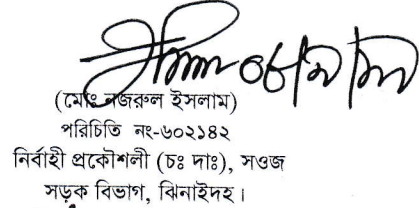 (মোঃ নজরুল ইসলাম)
পরিচিতি নং-৬০২১৪২
নির্বাহী প্রকৌশলী (চঃ দাঃ), সওজ
সড়ক বিভাগ, ঝিনাইদহ।